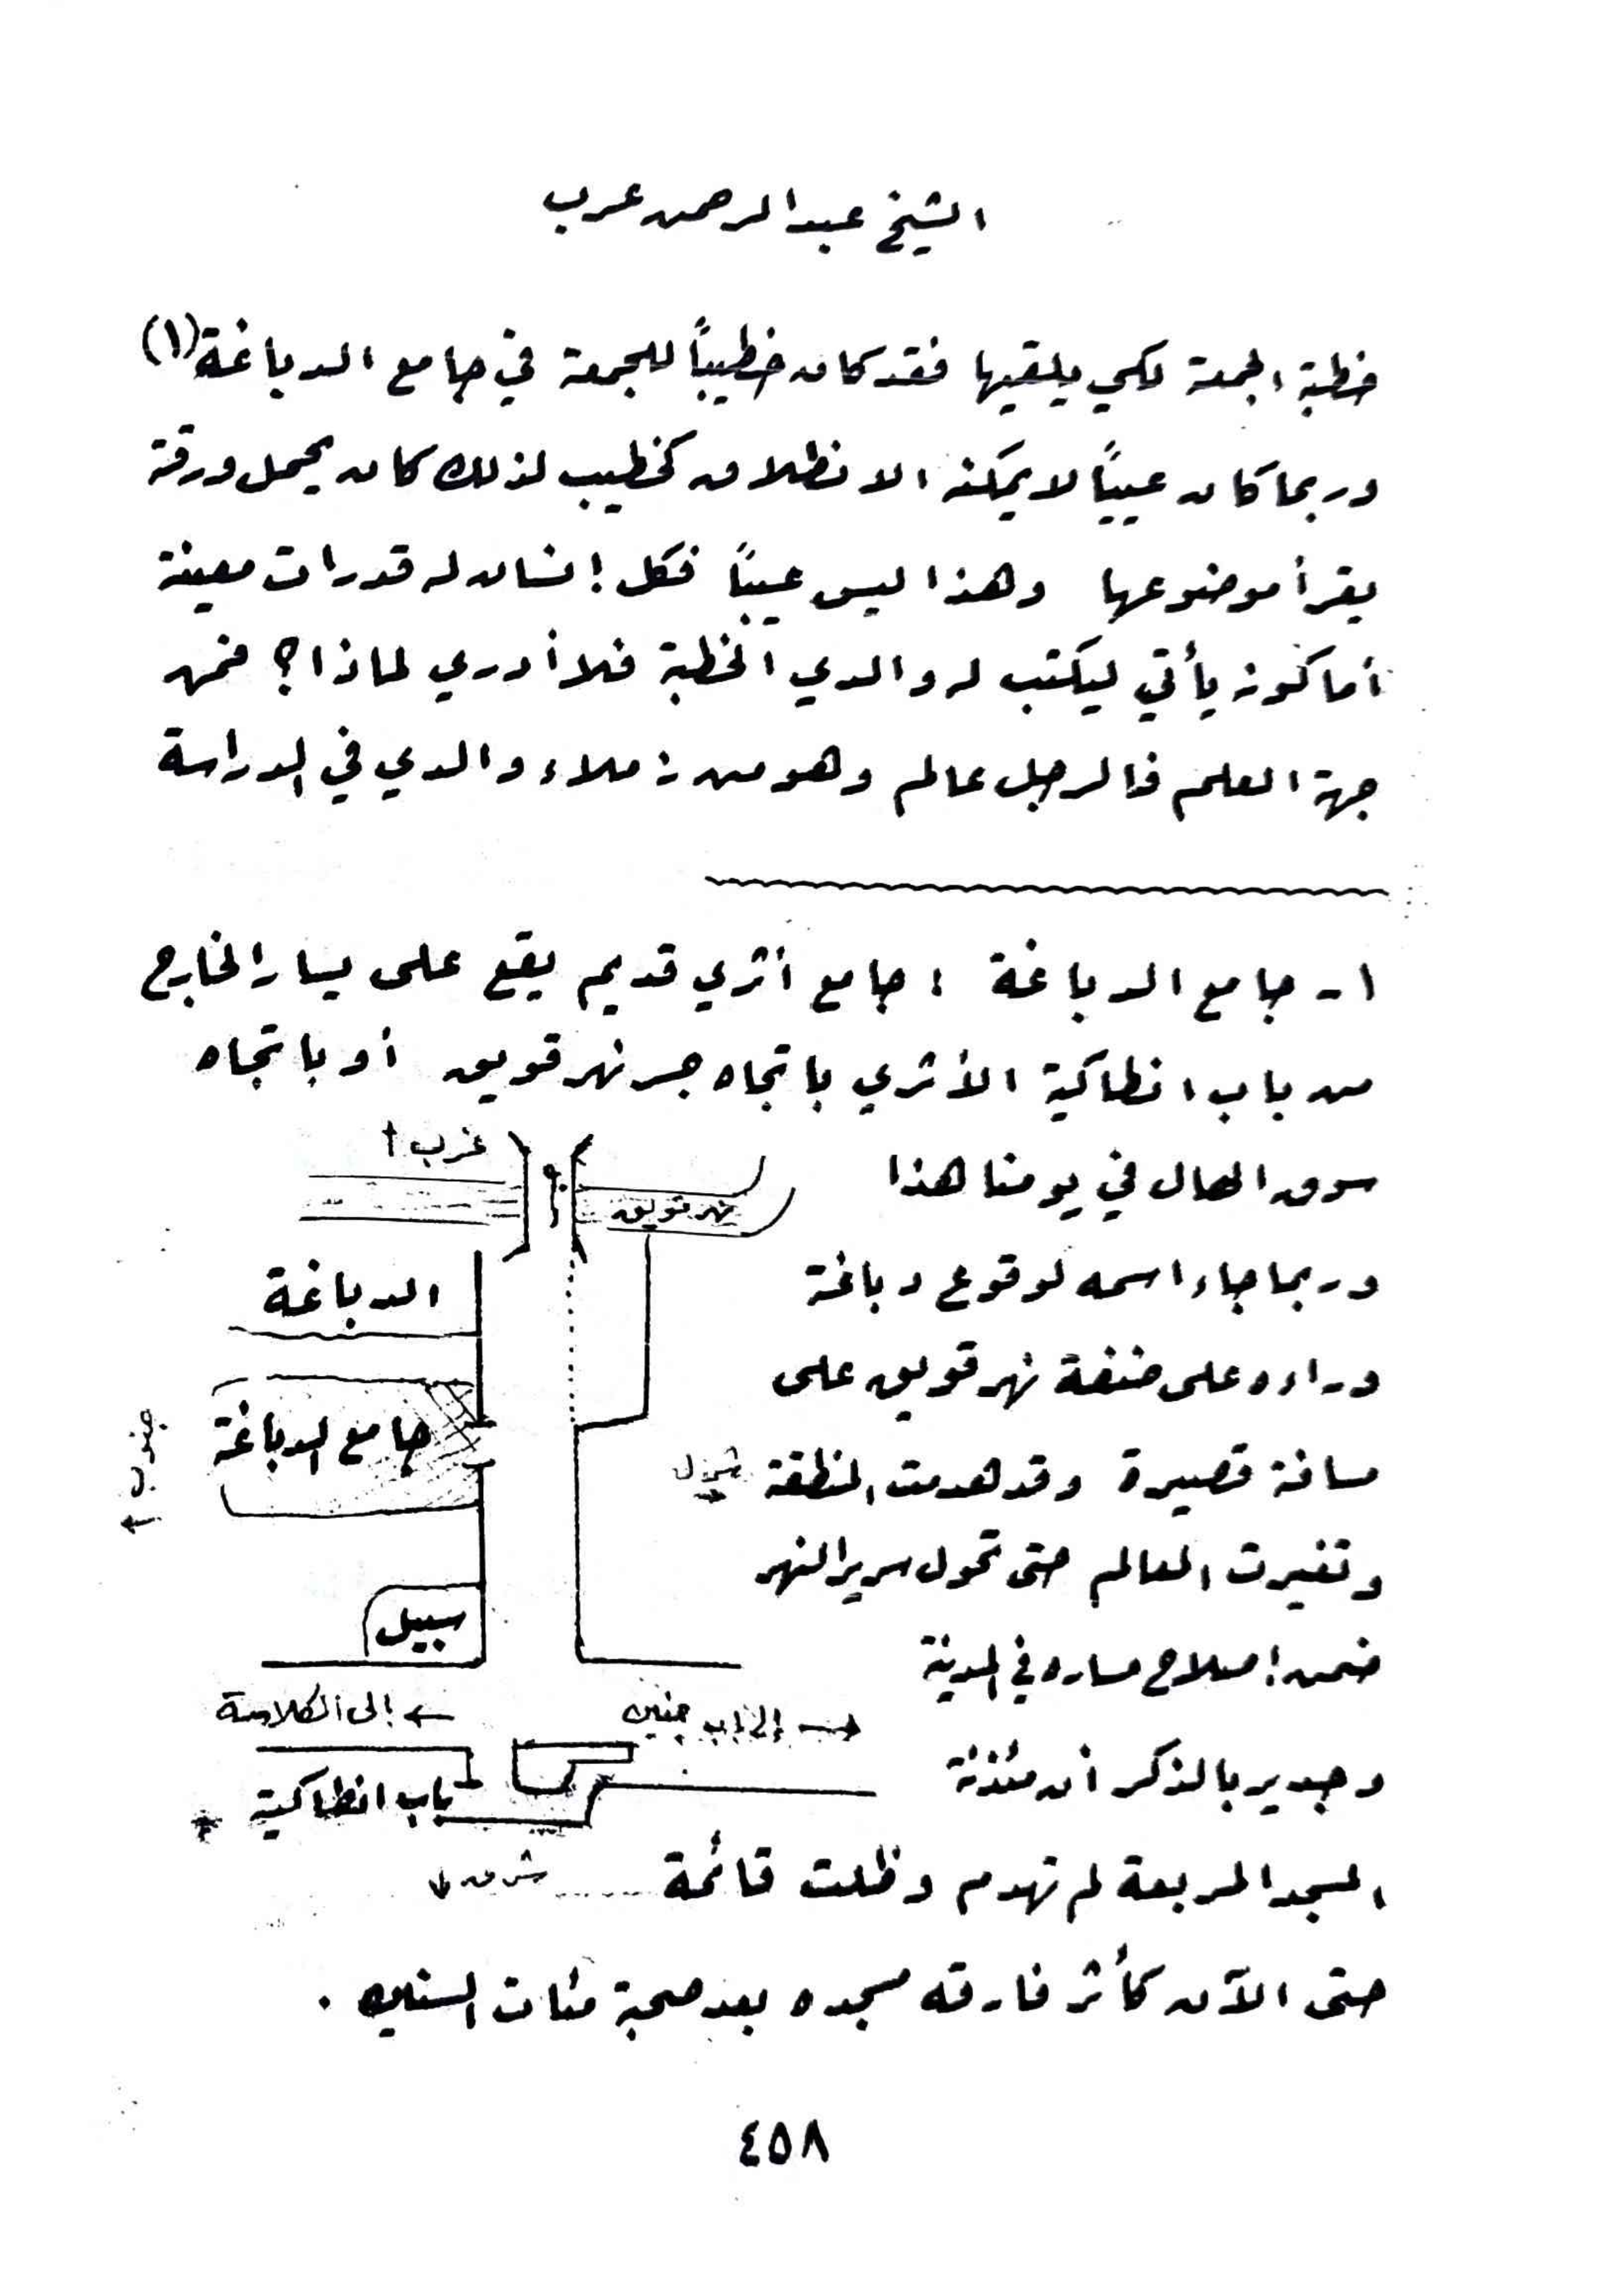 الشيخ عبدالرحمن عرب
خطبة الجمعة لكي يلقيها فقد كان خطيباً للجمعة في جامع الدباغة (١)
وربما كان عيياً لا يمكنه الانطلاق كخطيب لذلك كان يحمل ورقة
يقرأ موضوعها وهذا ليس عيباً فكل إنسان له قدرات معينة
أما كونه يأتي ليكتب له والدي الخطبة فلا أدري لماذا؟ فمن
جهة العلم فالرجل عالم وهو من زملاء والدي في الدراسة
١ـ جامع الدباغة : جامع أثري قديم يقع على يسار الخارج
من باب انطاكية الأثري باتجاه جسر نهر قويق أو باتجاه
سوق الهال في يومنا هذا
وربما جاء اسمه لوقوع دباغة
وراءه على ضفة نهر قويق على
مسافة قصيرة وقد هدمت المنطقة
وتغيرت المعالم حتى تحول سرير النهر
ضمن إصلاح مساره في المدينة
وجدير بالذكر أن مئذنة
المسجد المربعة لم تهدم وظلت قائمة
حتى الآن كأثر فارقه مسجده بعد صحبة مئات السنين .
غرب ↑
نهر قويق
الدباغة
جامع الدباغة
جنوب ←
شمال →
سبيل
← إلى الكلاسة
إلى باب جنين →
باب انطاكية
شرق ↓
٤٥٨